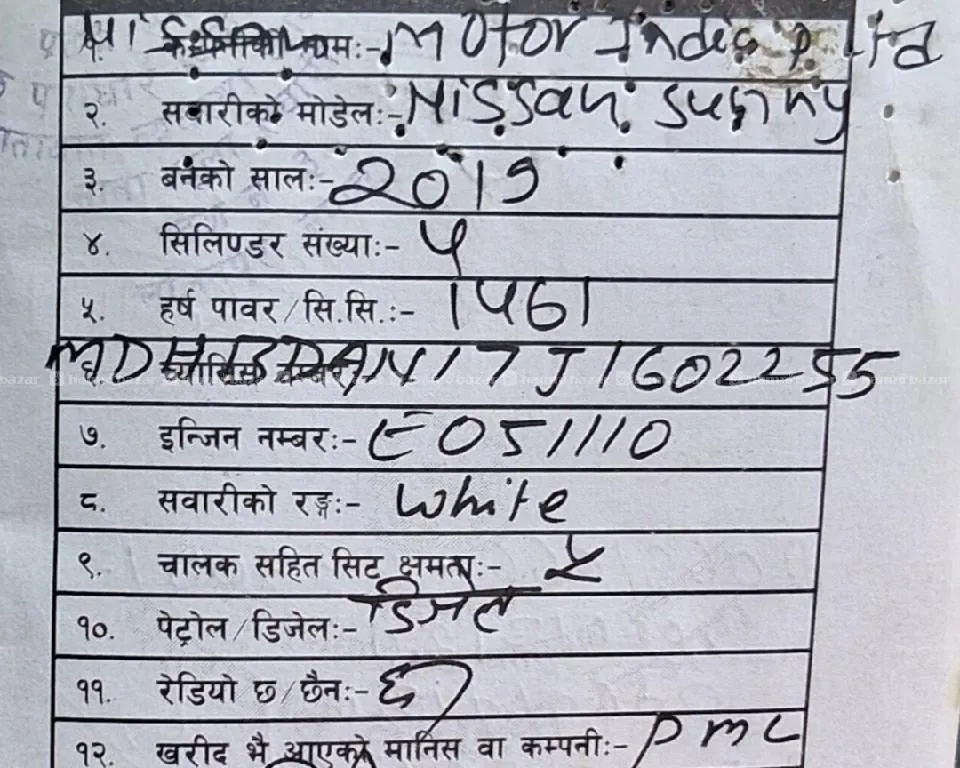 १. कम्पनीको नामः- Nissan Motor India P. Ltd
२. सवारीको मोडेलः- Nissan Sunny
३. बनेको सालः- 2019
४. सिलिण्डर संख्याः- ४
५. हर्ष पावर/सि.सि.ः- 1461
६. च्यासिस नम्बरः MDHBDAN17J1602255
७. इन्जिन नम्बरः- E051110
८. सवारीको रङ्गः- white
९. चालक सहित सिट क्षमताः- ५
१०. पेट्रोल/डिजेलः- डिजेल
११. रेडियो छ/छैनः- छ
१२. खरीद भै आएको मानिस वा कम्पनीः- PMC